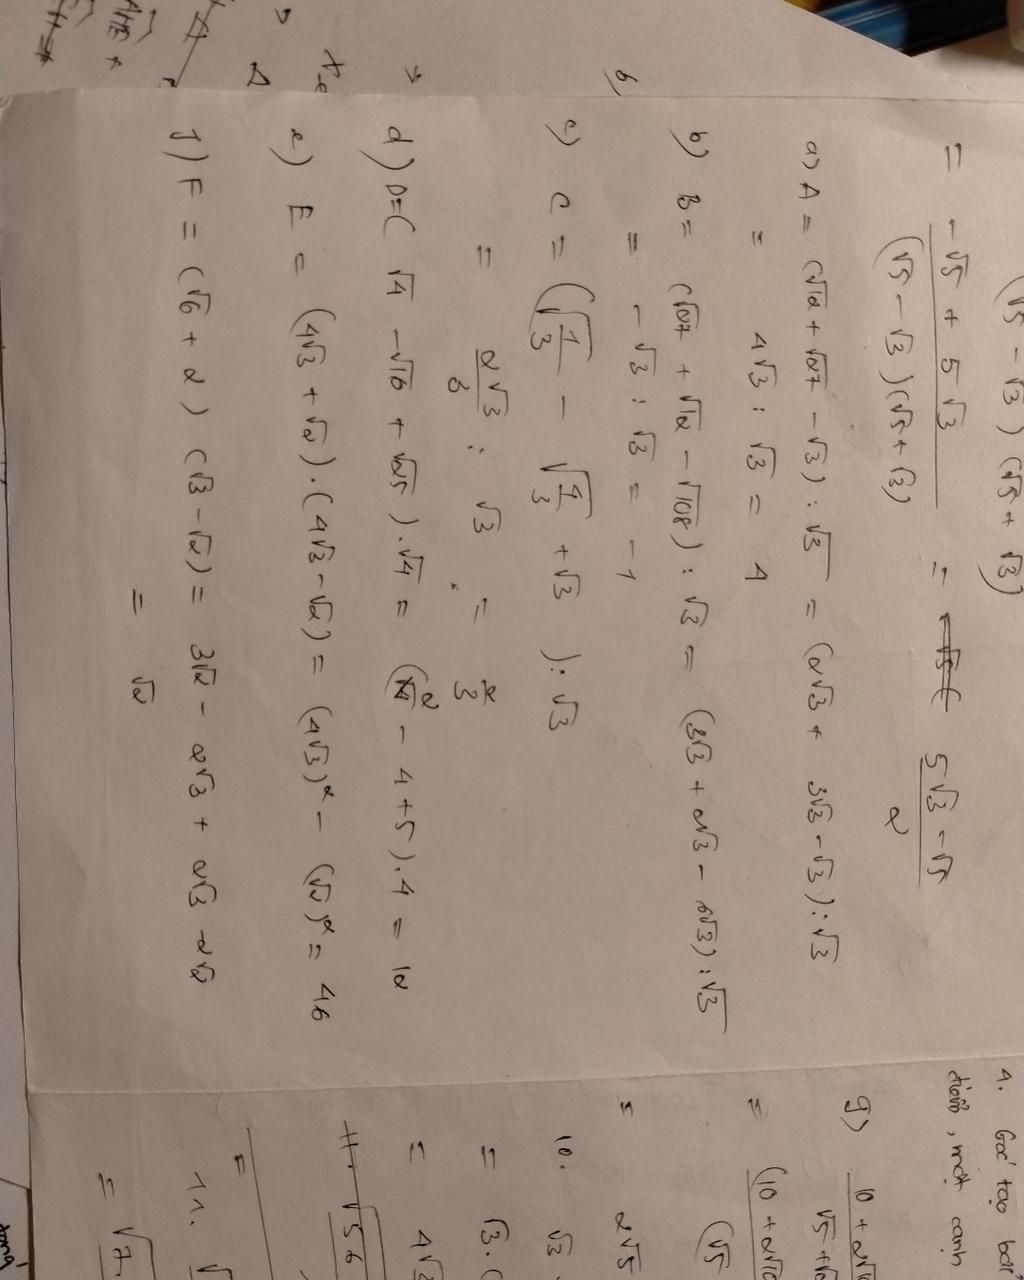 (√5 - √3) (√5 + √3)
= (-√5 + 5√3) / ((√5 - √3)(√5 + √3)) = (5√3 - √5) / 2
a) A = (√12 + √27 - √3) : √3 = (2√3 + 3√3 - √3) : √3
= 4√3 : √3 = 4
b) B = (√27 + √12 - √108) : √3 = (3√3 + 2√3 - 6√3) : √3
= -√3 : √3 = -1
c) C = (√(1/3) - √(4/3) + √3) : √3
= 2√3/3 : √3 = 2/3
d) D = (√4 - √16 + √25) . √4 = (2 - 4 + 5) . 4 = 12
e) E = (4√3 + √2) . (4√3 - √2) = (4√3)² - (√2)² = 46
f) F = (√6 + 2) (√3 - √2) = 3√2 - 2√3 + 2√3 - 2√2
= √2
4. Góc tạo bởi
điểm, một cạnh
g) 10 + 2√10
=
(10 + 2√10
(√5
= 2√5
10. √3
= √3. (
= 4√3
11. √56
=
11. √
= √7.